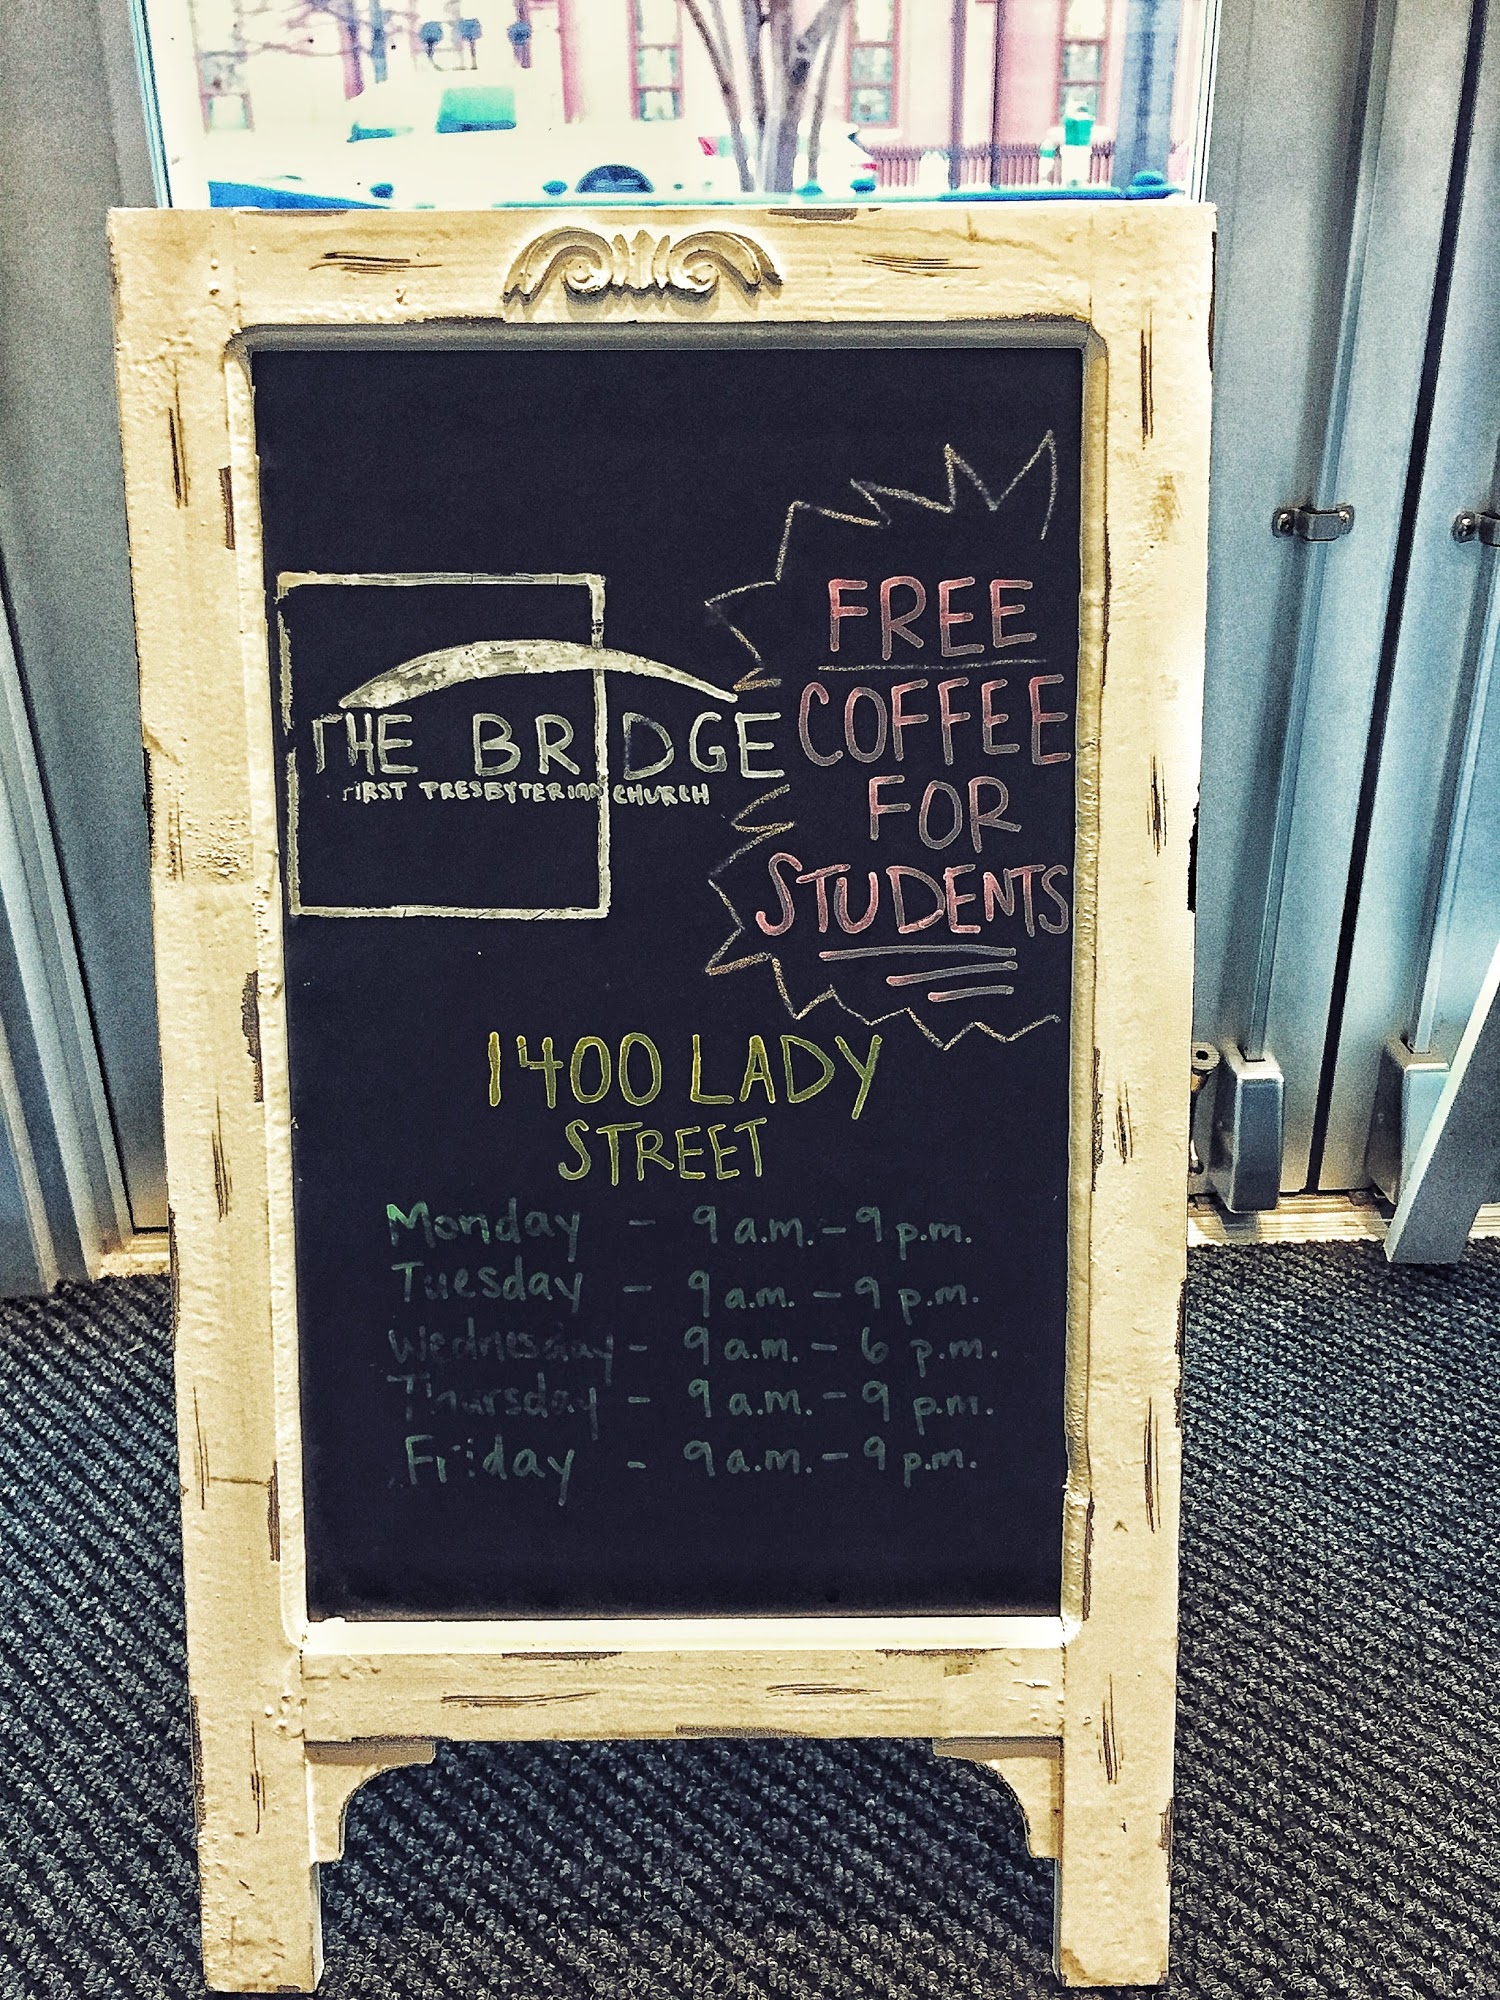 THE BRIDGE
FIRST PRESBYTERIAN CHURCH
FREE
COFFEE
FOR
STUDENTS
1400 LADY
STREET
Monday - 9 a.m. - 9 p.m.
Tuesday - 9 a.m. - 9 p.m.
Wednesday - 9 a.m. - 6 p.m.
Thursday - 9 a.m. - 9 p.m.
Friday - 9 a.m. - 9 p.m.